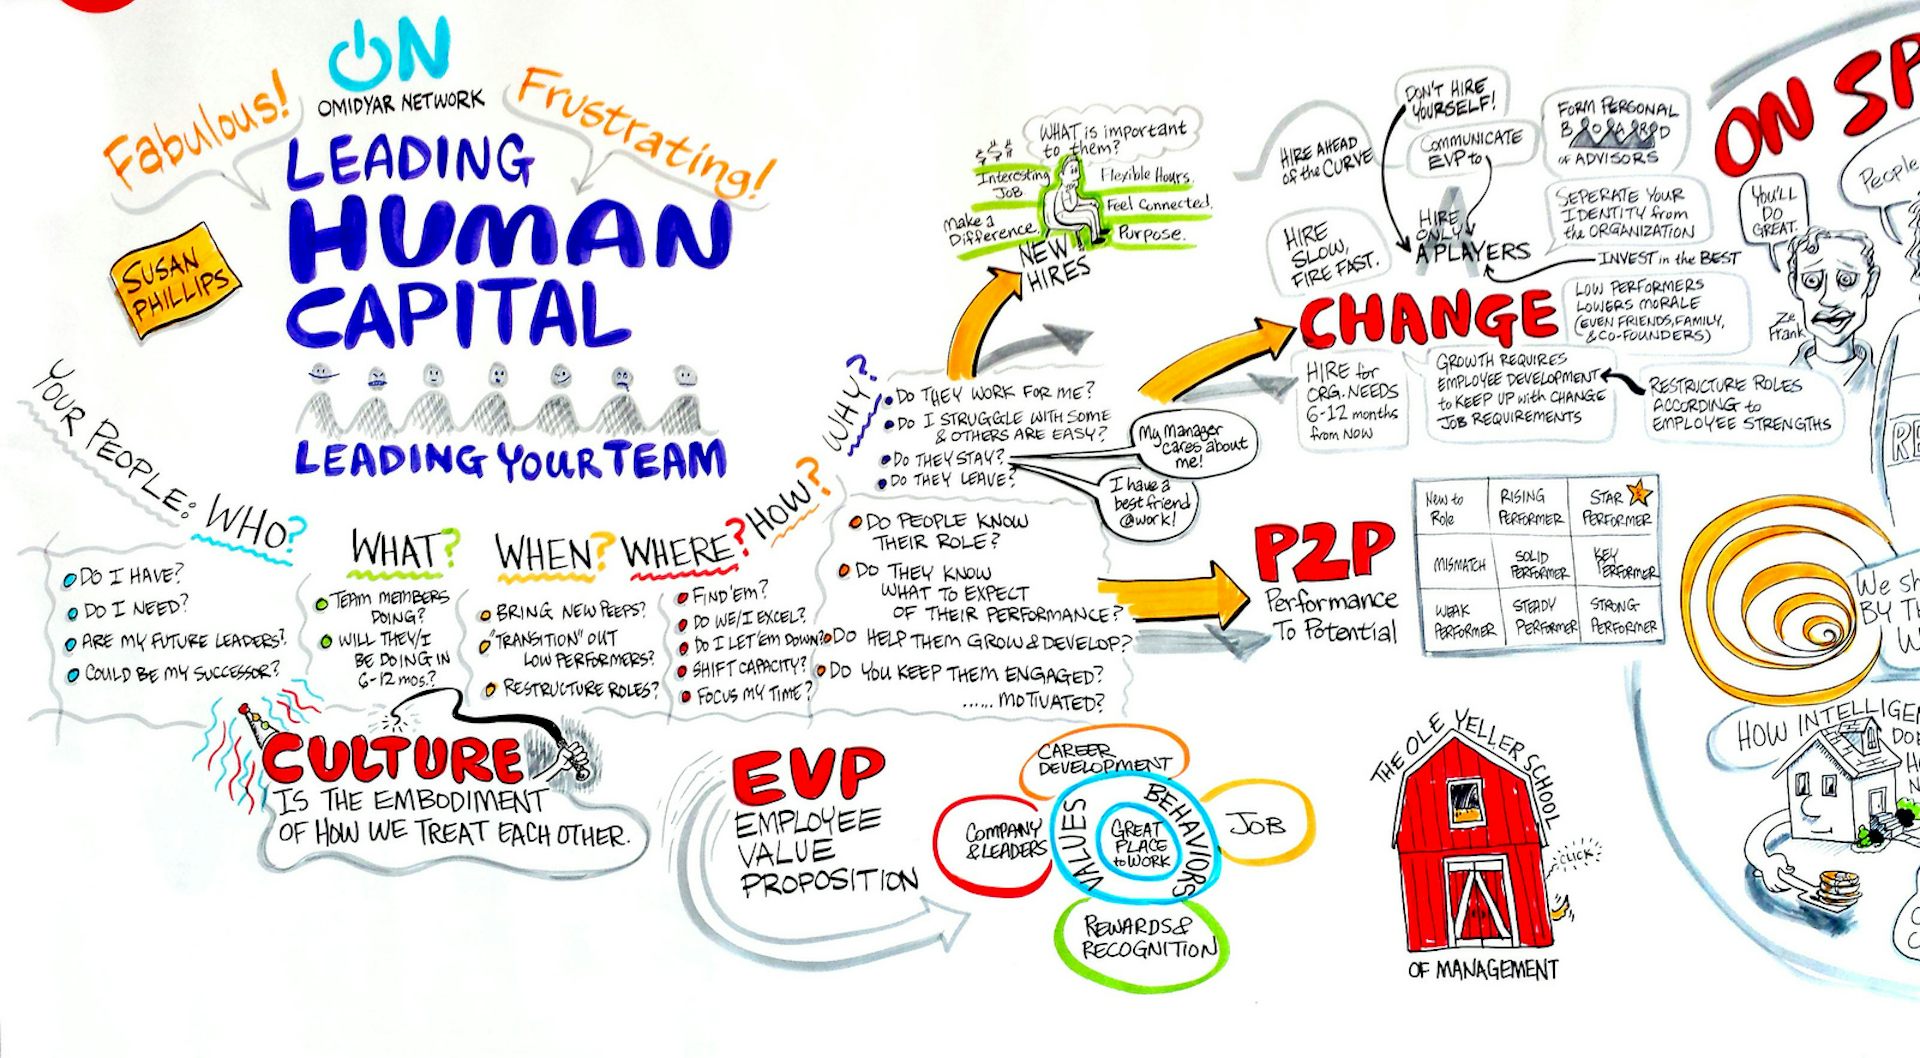 ON
OMIDYAR NETWORK
Fabulous!
Frustrating!
LEADING
HUMAN
CAPITAL
SUSAN
PHILLIPS
LEADING YOUR TEAM
YOUR PEOPLE:
WHO?
DO I HAVE?
DO I NEED?
ARE MY FUTURE LEADERS?
COULD BE MY SUCCESSOR?
WHAT?
TEAM MEMBERS
DOING?
WILL THEY/I
BE DOING IN
6-12 mos.?
WHEN?
BRING NEW PEEPS?
"TRANSITION" OUT
LOW PERFORMERS?
RESTRUCTURE ROLES?
WHERE?
FIND 'EM?
DO WE/I EXCEL?
DO I LET 'EM DOWN?
SHIFT CAPACITY?
FOCUS MY TIME?
HOW?
DO PEOPLE KNOW
THEIR ROLE?
DO THEY KNOW
WHAT TO EXPECT
OF THEIR PERFORMANCE?
DO HELP THEM GROW & DEVELOP?
DO YOU KEEP THEM ENGAGED?
...... MOTIVATED?
WHY?
DO THEY WORK FOR ME?
DO I STRUGGLE WITH SOME
& OTHERS ARE EASY?
DO THEY STAY?
DO THEY LEAVE?
My Manager
cares about
me!
I have a
best friend
@work!
WHAT is important
to them?
$$$
Interesting
JOB
Make a
Difference.
Flexible Hours.
Feel Connected.
Purpose.
NEW
HIRES
HIRE AHEAD
of the CURVE
DON'T HIRE
YOURSELF!
COMMUNICATE
EVP to
FORM PERSONAL
BOARD
of ADVISORS
HIRE
SLOW,
FIRE FAST.
HIRE
ONLY
A PLAYERS
SEPERATE YOUR
IDENTITY from
the ORGANIZATION
INVEST in the BEST
CHANGE
LOW PERFORMERS
LOWERS MORALE
(EVEN FRIENDS, FAMILY,
& CO-FOUNDERS)
HIRE for
ORG. NEEDS
6-12 months
from NOW
GROWTH REQUIRES
EMPLOYEE DEVELOPMENT
to KEEP UP with CHANGE
JOB REQUIREMENTS
RESTRUCTURE ROLES
ACCORDING to
EMPLOYEE STRENGTHS
P2P
Performance
To Potential
New to
Role
RISING
PERFORMER
STAR
PERFORMER
MISMATCH
SOLID
PERFORMER
KEY
PERFORMER
WEAK
PERFORMER
STEADY
PERFORMER
STRONG
PERFORMER
CULTURE
IS THE EMBODIMENT
OF HOW WE TREAT EACH OTHER.
EVP
EMPLOYEE
VALUE
PROPOSITION
CAREER
DEVELOPMENT
COMPANY
& LEADERS
VALUES
BEHAVIORS
GREAT
PLACE
to WORK
JOB
REWARDS &
RECOGNITION
THE OLE YELLER SCHOOL
CLICK
OF MANAGEMENT
ON SP
People
YOU'LL
DO
GREAT.
Ze
Frank
RE
We sh
BY TH
W
HOW INTELLIGEN
DOE
H
N